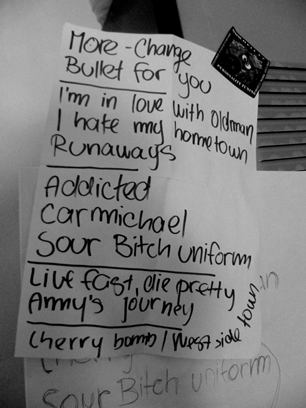 More - Change
Bullet for you
I'm in love with Oldman
I hate my hometown
Runaways
Addicted
Carmichael
Sour Bitch uniform
Live fast, die pretty
Anny's journey
Cherry bomb / West side town
Sour Bitch uniform)